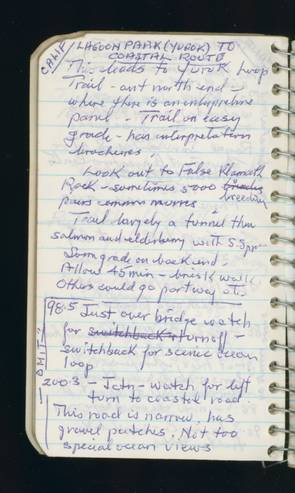 CALIF / LAGOON PARK (YUROK) TO
COASTAL ROUTE
This leads to Yurok Loop
Trail - at north end -
where there is an interpretive
panel - Trail on easy
grade - has interpretation
brochures.
Look out to False Klamath
Rock - sometimes 5000
breeding
pairs common murres
Trail largely a tunnel thru
salmon and elderberry with S. Spruce
Some grade on back end.
Allow 45 min - brisk walk
Others could go part way etc.
98.5 Just over bridge watch
for switchback turnoff -
switchback for scenic ocean
loop
OMIT?
200.3 - Jctn - watch for left
turn to coastal road.
This road is narrow, has
gravel patches. Not too
special ocean views